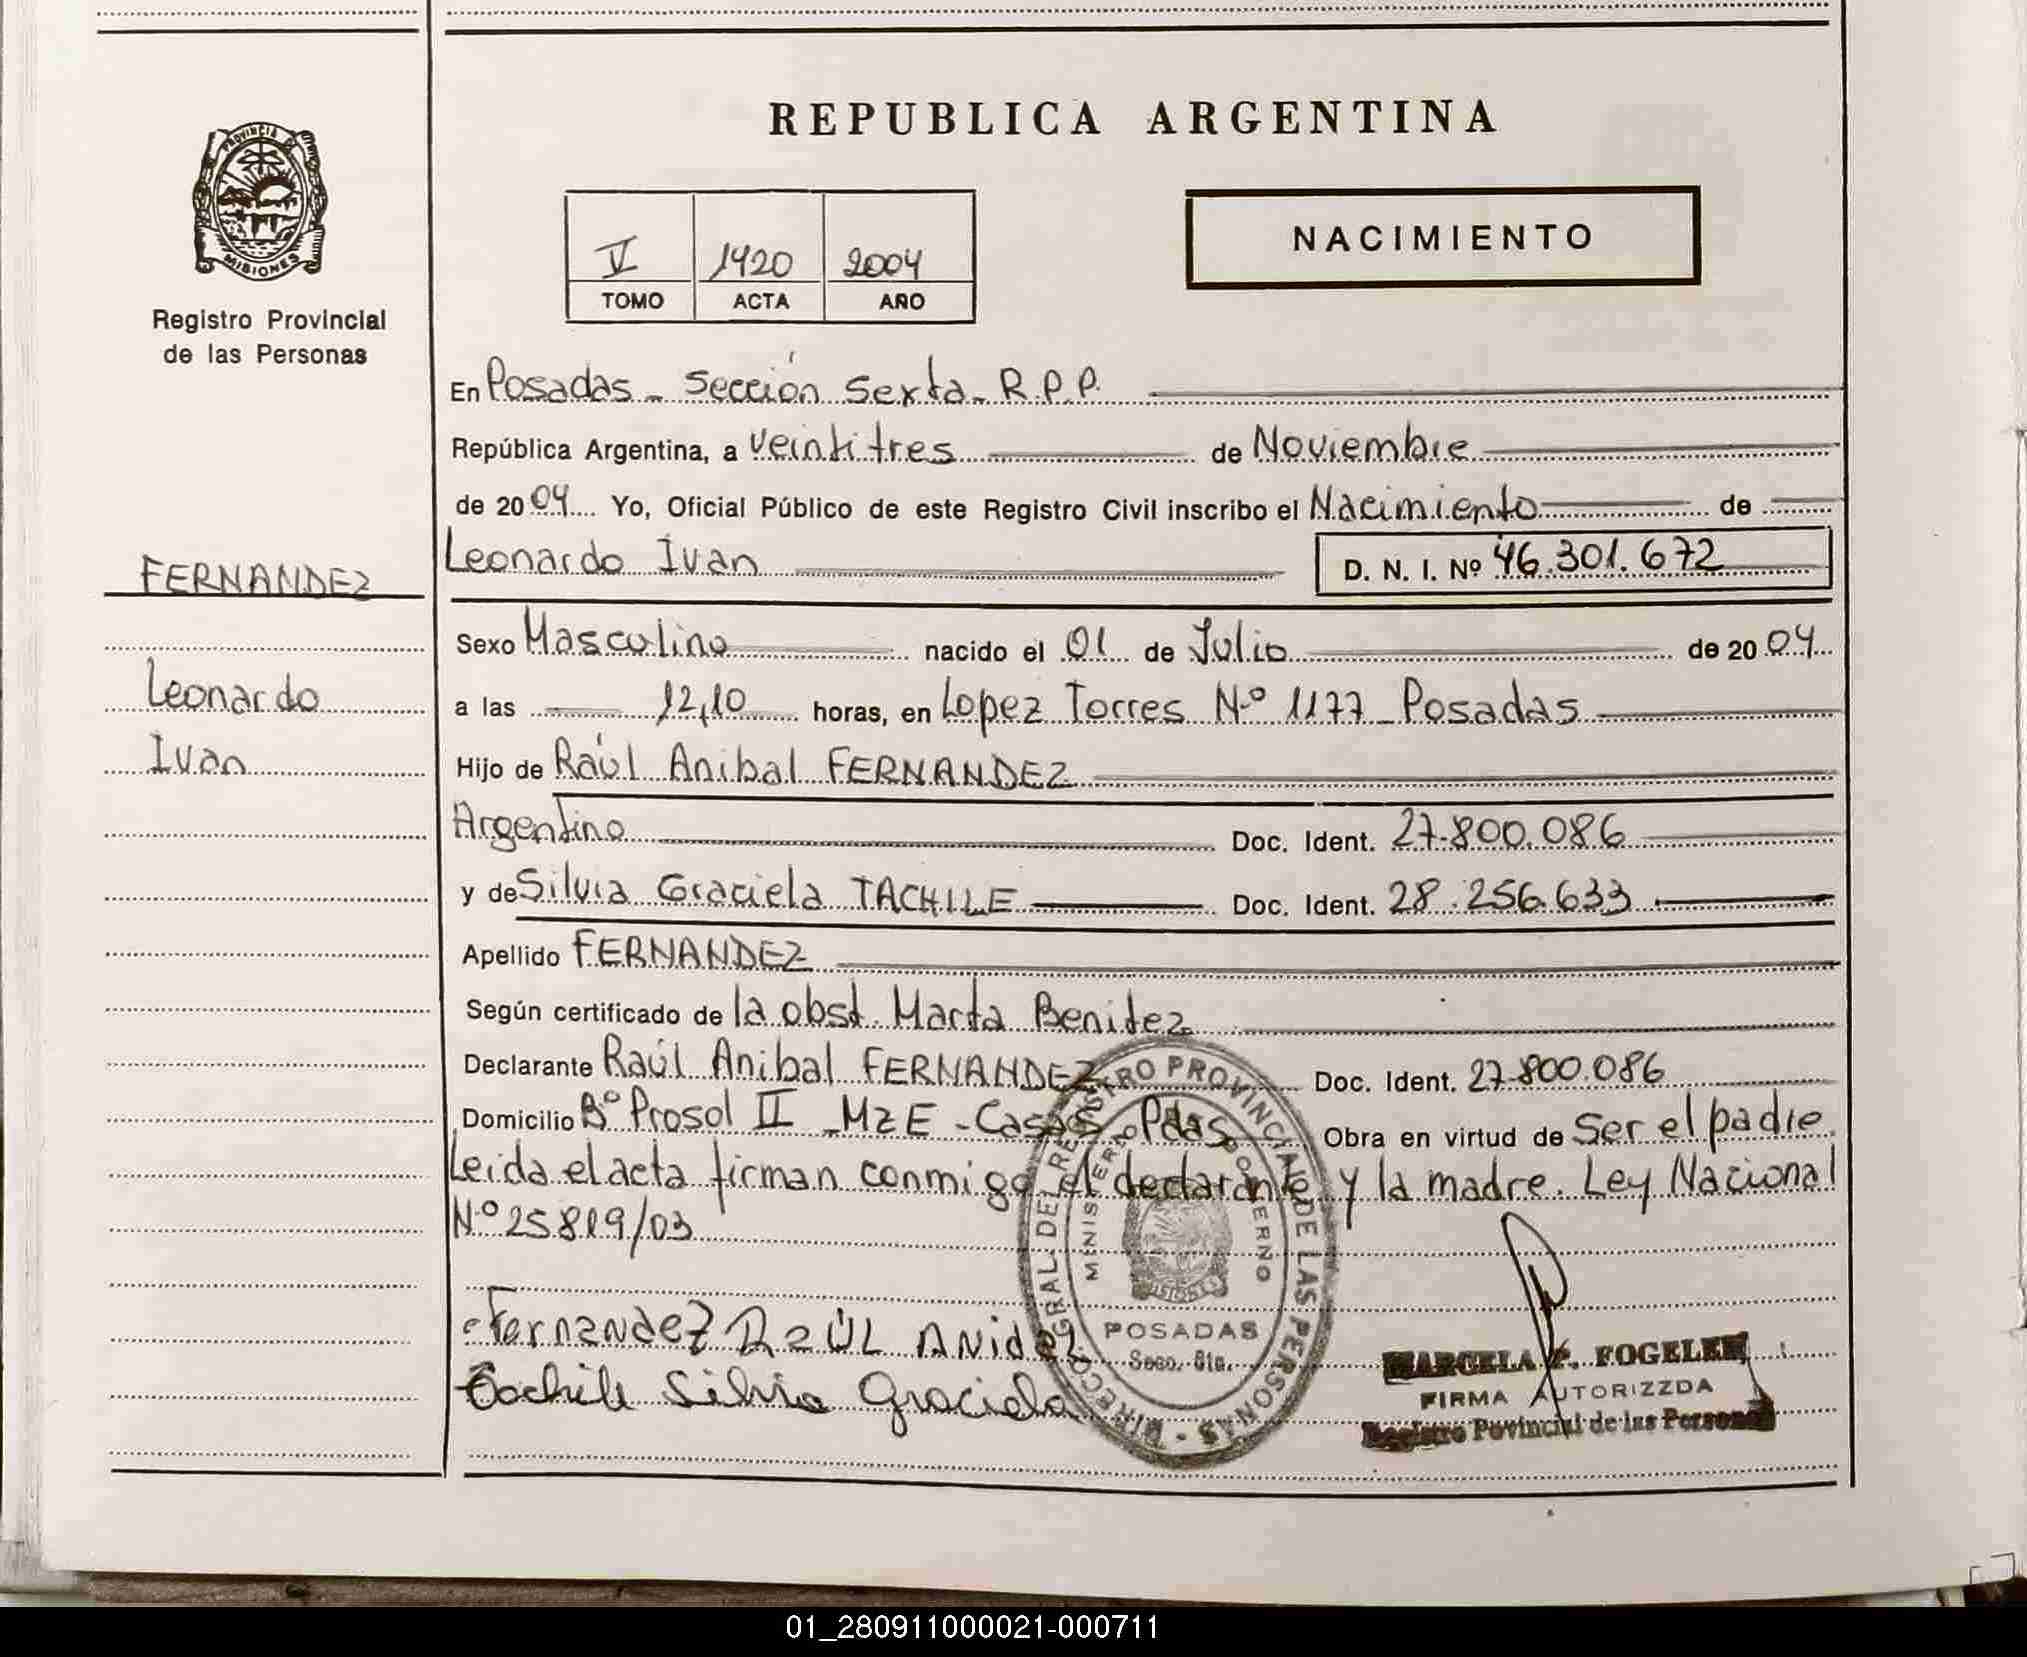 PROVINCIA DE
MISIONES
Registro Provincial
de las Personas
FERNANDEZ
Leonardo
Ivan
REPUBLICA ARGENTINA
V 1420 2004
TOMO ACTA AÑO
NACIMIENTO
En Posadas - Sección Sexta - R.P.P.
República Argentina, a Veintitres de Noviembre
de 2004 Yo, Oficial Público de este Registro Civil inscribo el Nacimiento de
Leonardo Ivan D. N. I. Nº 46.301.672
Sexo Masculino nacido el 01 de Julio de 2004
a las 12,10 horas, en Lopez Torres Nº 1177 - Posadas
Hijo de Raúl Anibal FERNANDEZ
Argentino Doc. Ident. 27.800.086
y de Silvia Graciela TACHILE Doc. Ident. 28.256.633
Apellido FERNANDEZ
Según certificado de la obst. Marta Benitez
Declarante Raúl Anibal FERNANDEZ Doc. Ident. 27.800.086
Domicilio Bº Prosol II - MzE - Pdas Obra en virtud de Ser el padre.
Leida el acta firman conmigo el declarante y la madre. Ley Nacional
Nº 25819/03
Fernandez Raúl
Tachile Silvia Graciela
DIRECC. GRAL. DEL REGISTRO PROVINCIAL DE LAS PERSONAS -
MINISTERIO DE GOBIERNO
POSADAS
Secc. 6ta.
MARCELA P. FOGELER
FIRMA AUTORIZZDA
Registro Povincial de las Personas
01_280911000021-000711